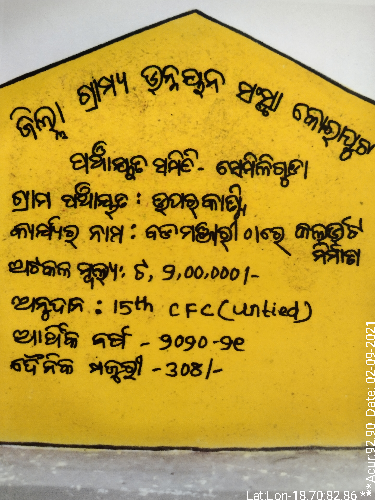 ଜିଲ୍ଲା ଗ୍ରାମ୍ୟ ଉନ୍ନୟନ ସଂସ୍ଥା କୋରାପୁଟ
ପଞ୍ଚାୟତ ସମିତି - ସେମିଳିଗୁଡା
ଗ୍ରାମ ପଞ୍ଚାୟତ : ଉପର୍କାଡ଼ି
କାର୍ଯ୍ୟର ନାମ : ବଡମଞ୍ଜାରୀ ଠାରେ କଲଭର୍ଟ
ନିର୍ମାଣ
ଅଟକଳ ମୂଲ୍ୟ: ଟ, 2,00,000/-
ଅନୁଦାନ : 15th CFC (Untied)
ଆର୍ଥିକ ବର୍ଷ - ୨୦୨୦-୨୧
ଦୈନିକ ମଜୁରୀ - 308/-
Lat:Lon-18.70:82.86 ** Acur:92.90, Date: 02-09-2021